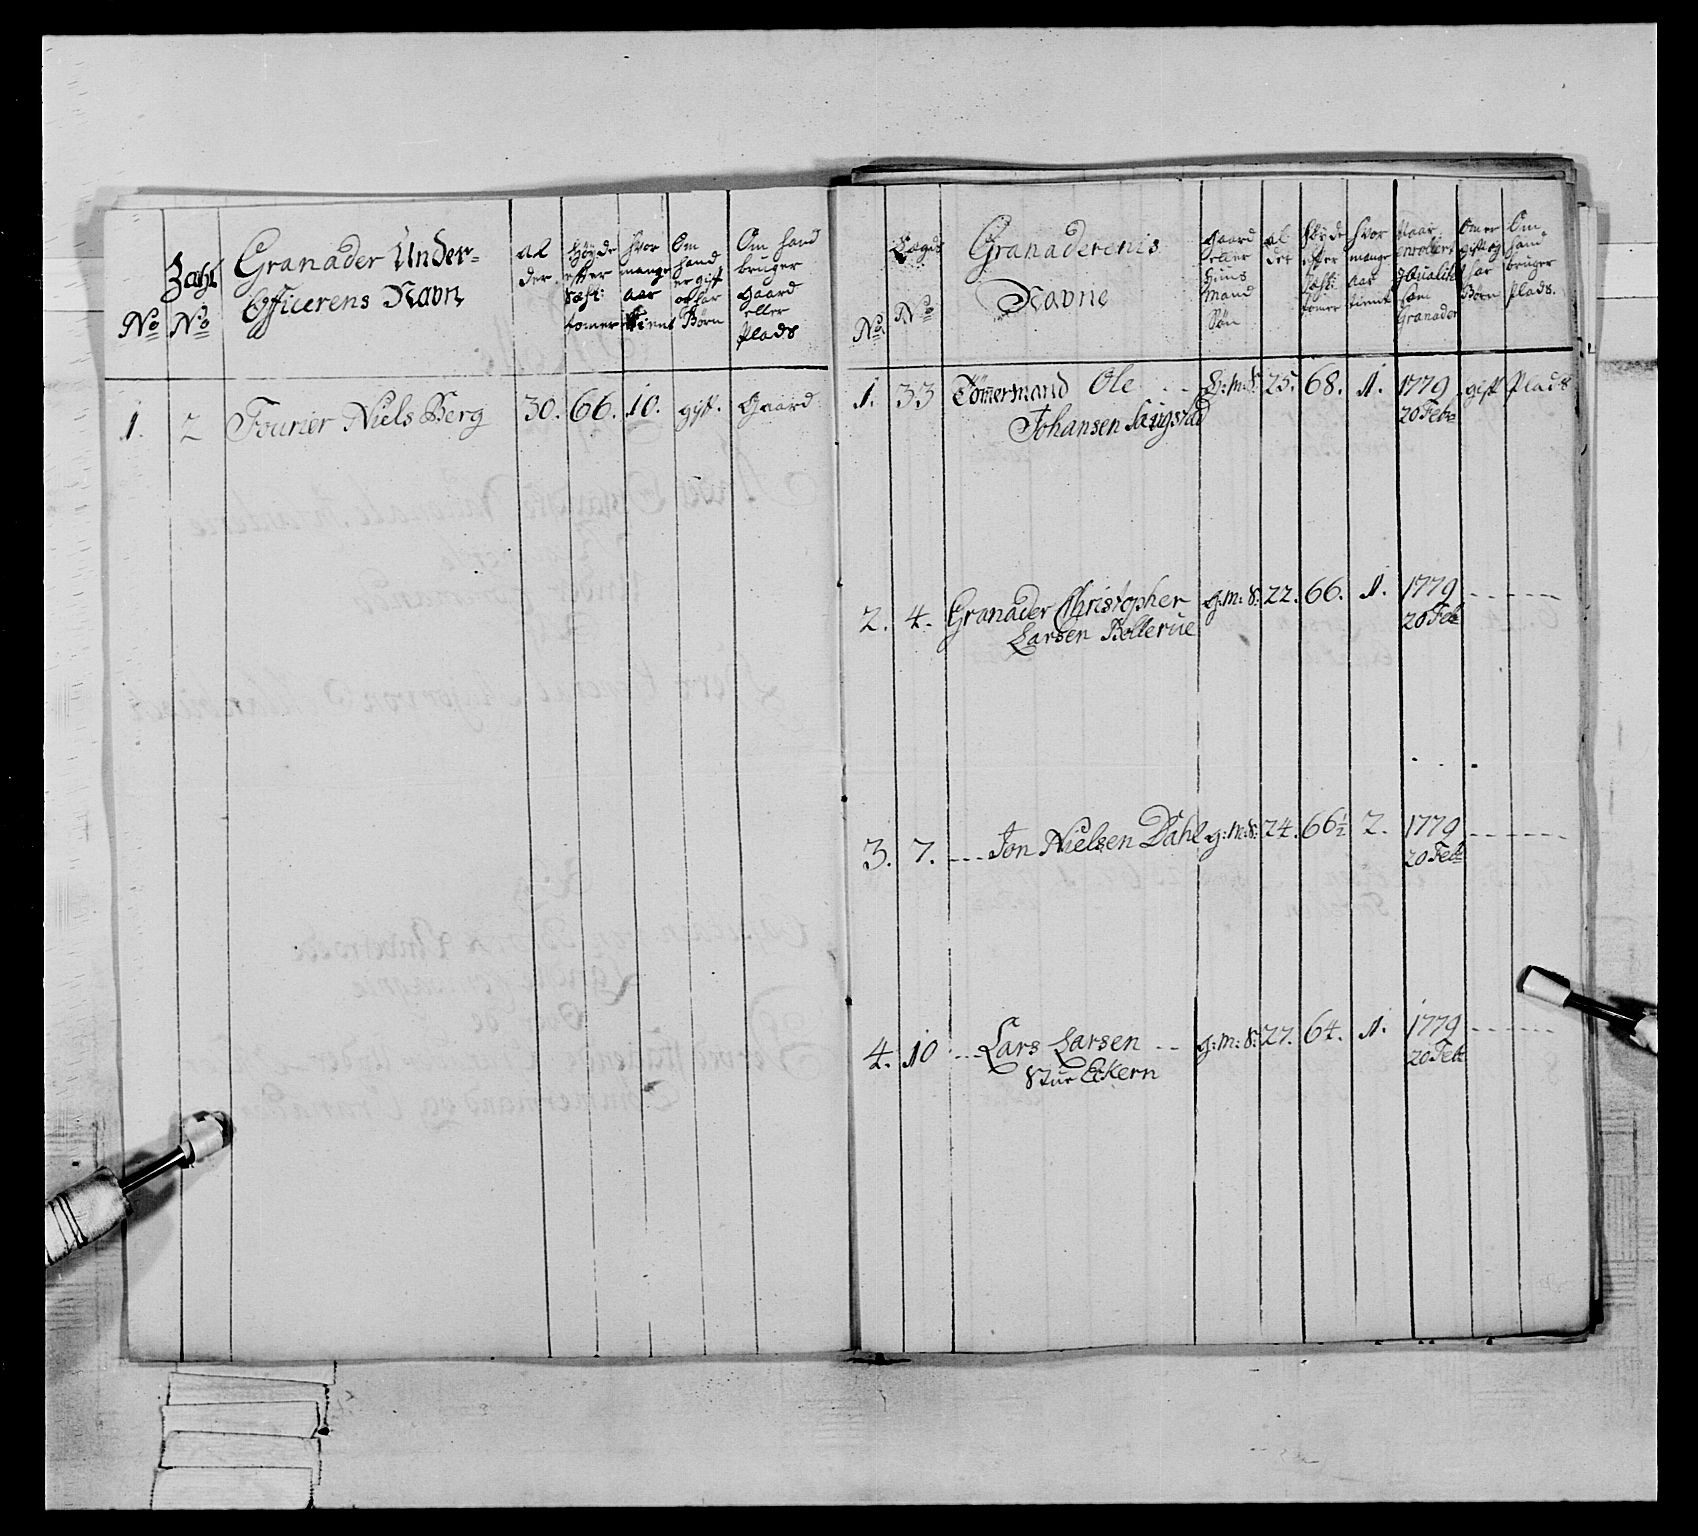 No
Zahl No
Granader Under-
Officerens Navn
al
der
Høyde
efter
Sæht:
tomer
hvor
mange
aar
tient
Om
hand
er gift
og har
Børn
Om hand
bruger
Gaard
eller
Plads
1. 2 Fourier Niels Berg 30. 66. 10. gift. Gaard
No
Lægds
No
Granaderenis
Navne
Gaard
eller
Huus
Mand
Søn
al
der
Høyde
efter
Sæht:
tomer
hvor
mange
aar
tient
Naar
enrollert
i Qualitet
som
Granader
Om er
gift og
har
Børn
Om
hand
bruger
Plads.
1. 33 Tömmermand Ole -- H:m:S: 25. 68. 1. 1779 gift Plads
Johansen Saugstad 20 Feb
2. 4. Granader Christopher g:m:S: 22. 66. 1. 1779 ------
Larsen Bollerue 20 Feb
3. 7. --- Jon Nielsen Dahl g:m:S: 24. 66½ 2. 1779 ------
20 Feb
4. 10 --- Lars Larsen -- g:m:S: 27. 64. 1. 1779 ------
Stue Eckern 20 Feb